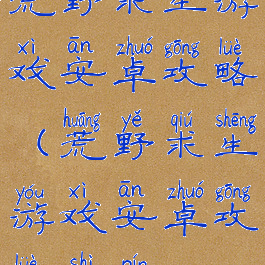 荒野求生游
xì ān zhuó gōng lüè
戏安卓攻略
huāng yě qiú shēng
（荒野求生
yóu xì ān zhuó gōng
游戏安卓攻
lüè shì pín